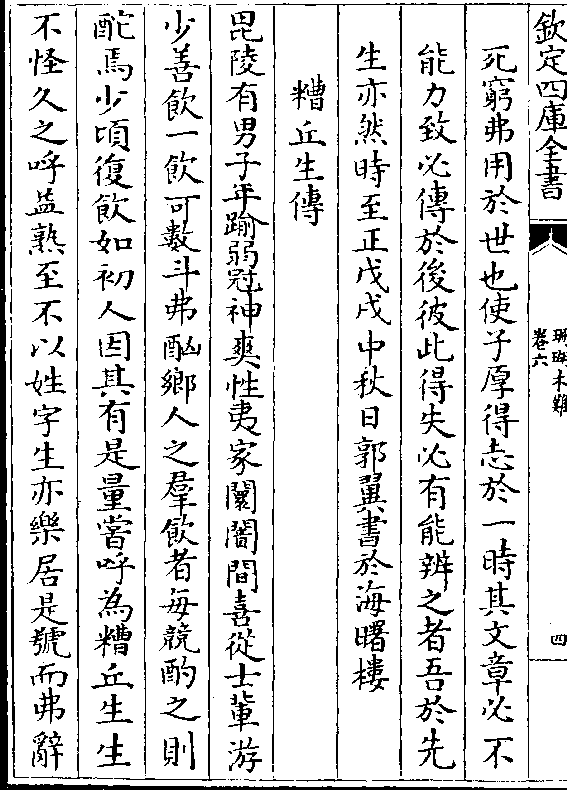 欽定四庫全書
珊瑚木難
卷六
四
死窮弗用於世也使子厚得志於一時其文章必不
能力致必傳於後彼此得失必有能辨之者吾於先
生亦然時至正戊戌中秋日郭翼書於海曙樓
糟丘生傳
毘陵有男子年踰弱冠神爽性夷家闤闠間喜從士輩游
少善飲一飲可數斗弗酗鄉人之羣飲者每競酌之則
酡焉少頃復飲如初人因其有是量嘗呼為糟丘生生
不怪久之呼益熟至不以姓字生亦樂居是號而弗辭